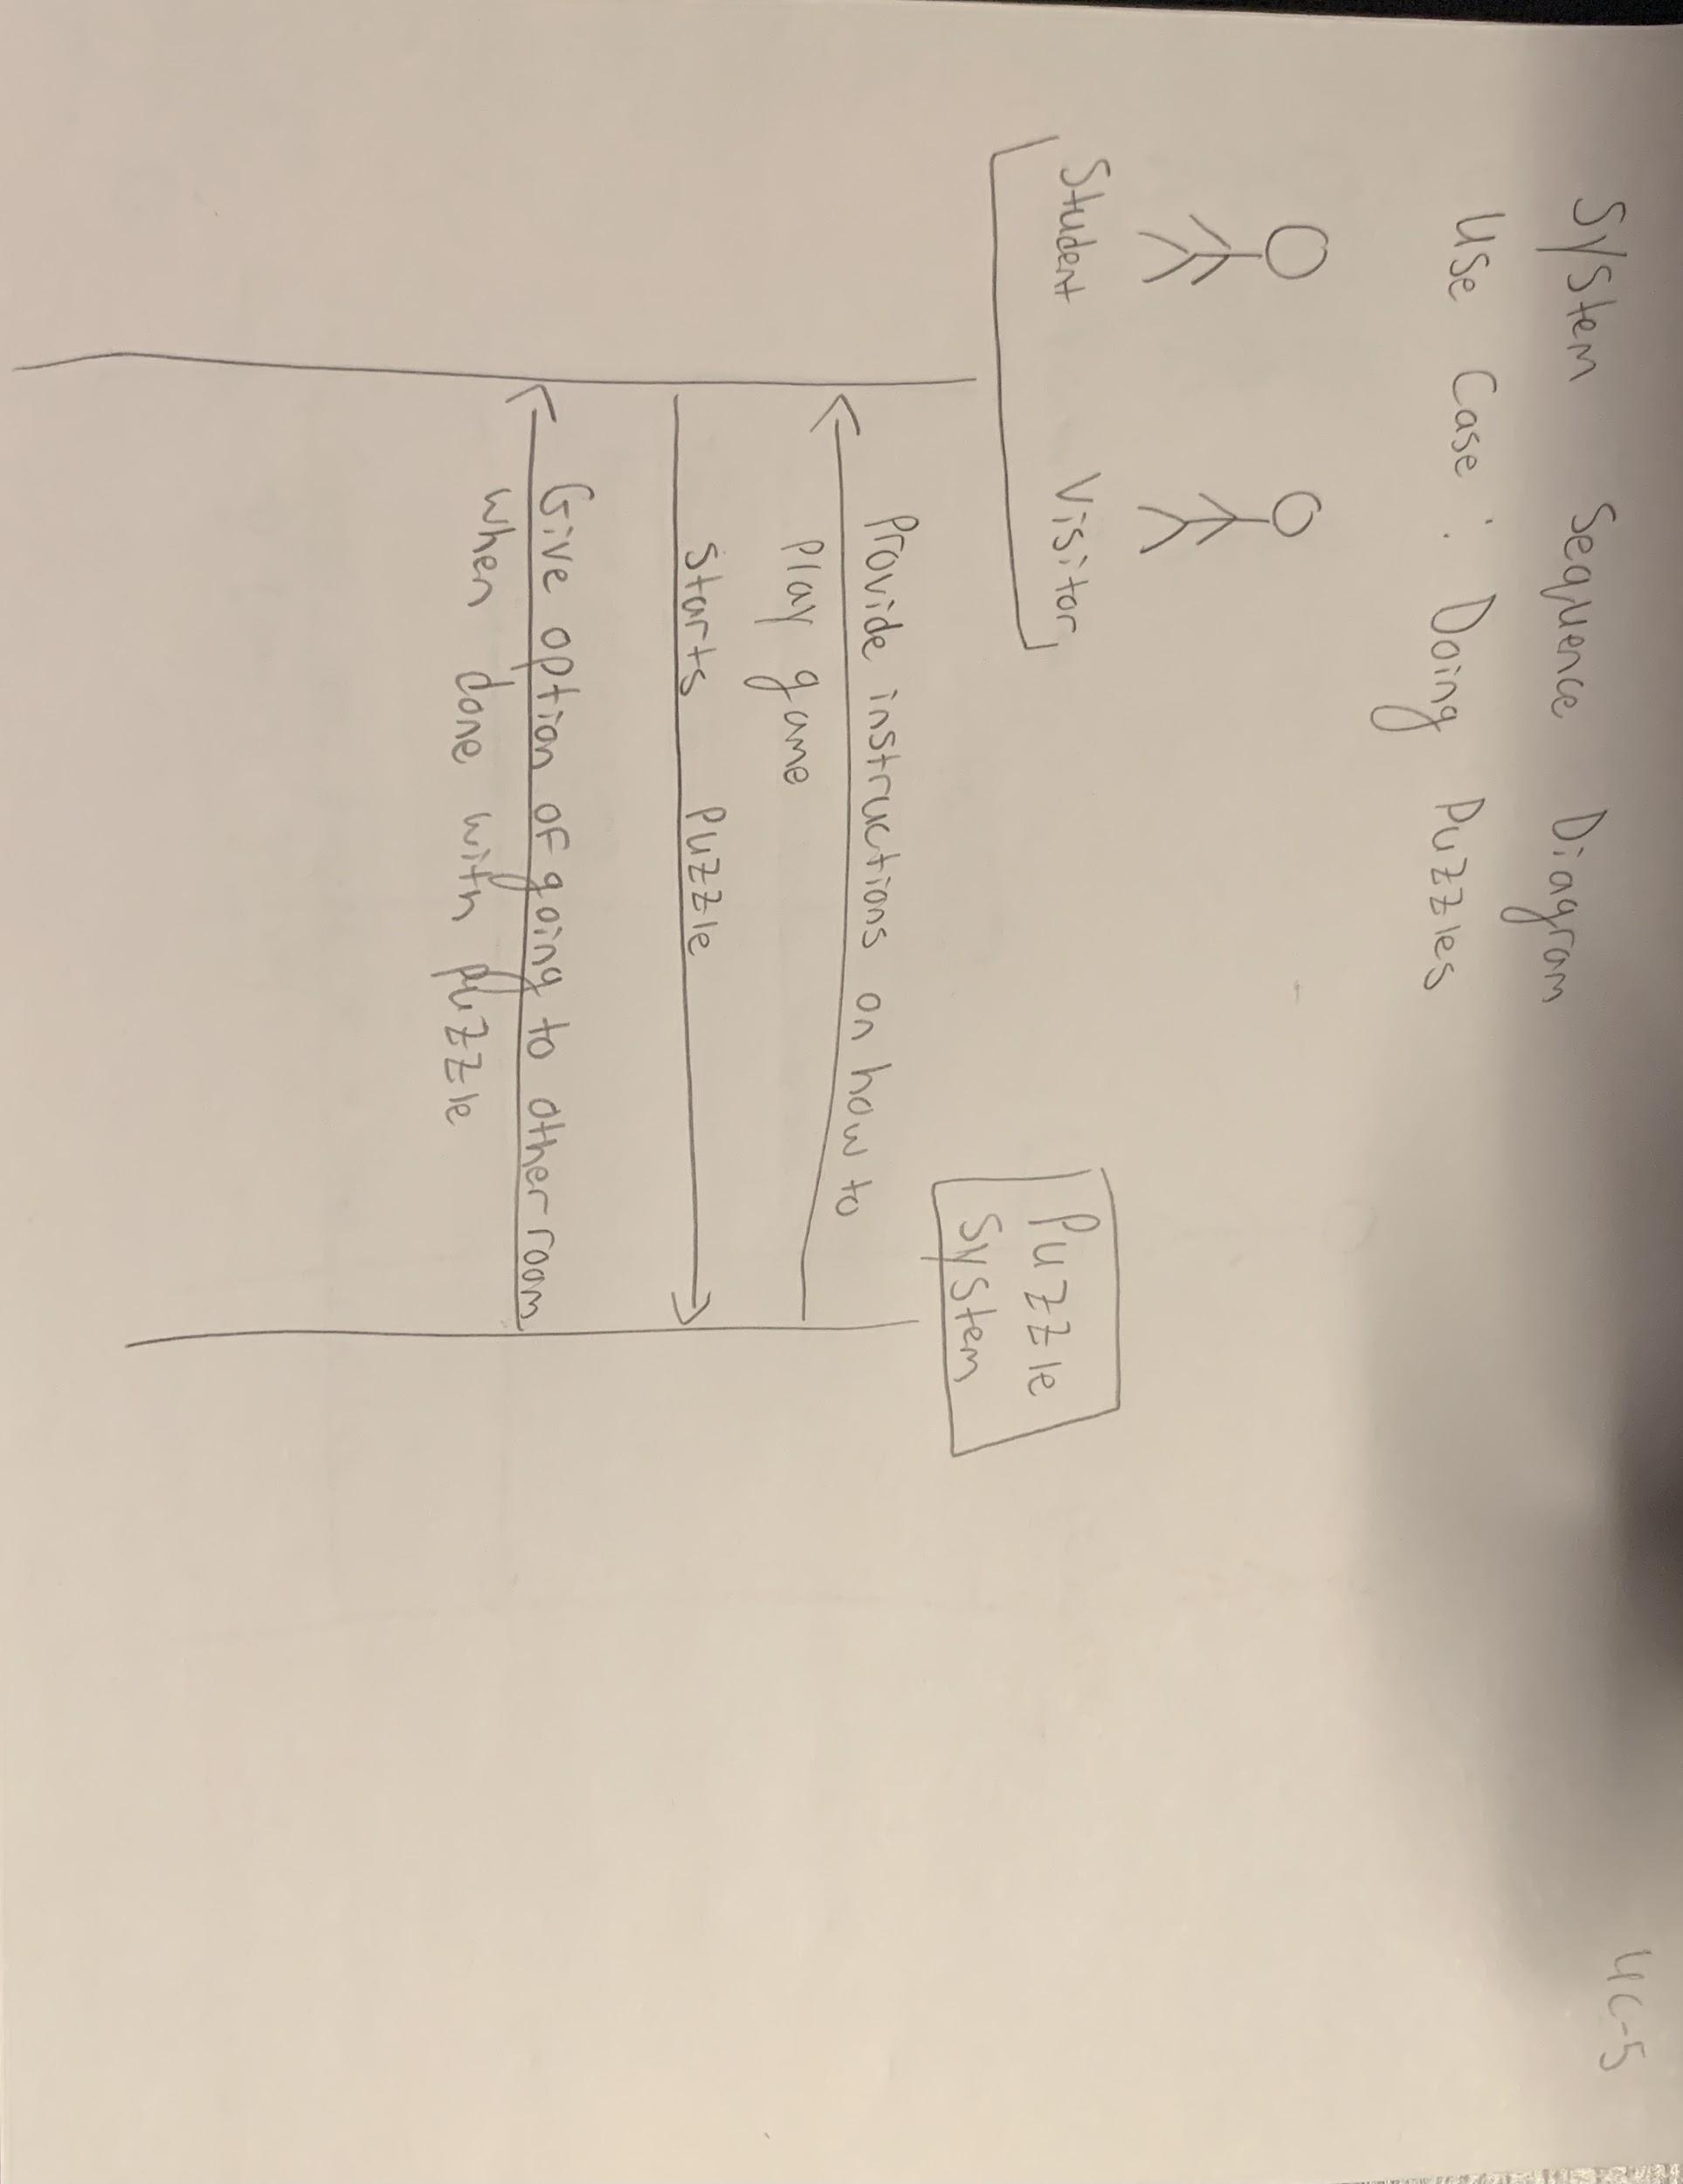 UC-5
System Sequence Diagram
Use Case: Doing Puzzles
Student Visitor
Puzzle
System
Provide instructions on how to
Play game
Starts Puzzle
Give option of going to other room
when done with puzzle